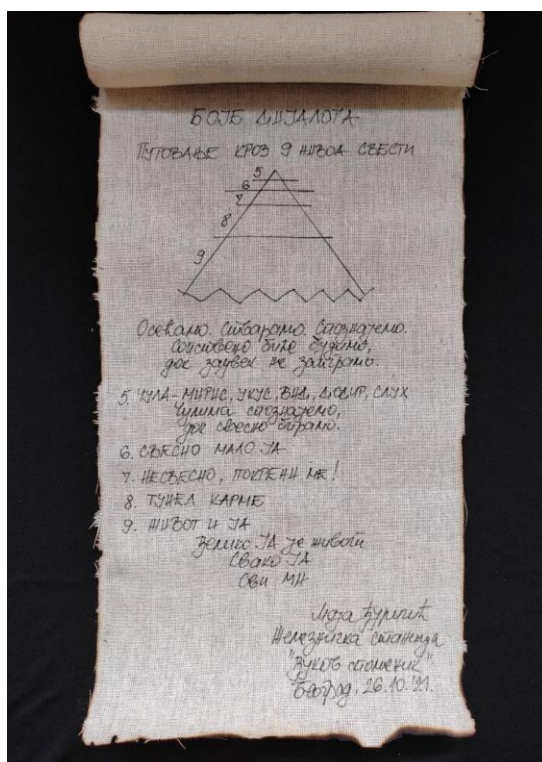 БОЈЕ ДИЈАЛОГА
ПУТОВАЊЕ КРОЗ 9 НИВОА СВЕСТИ
5
6
7
8
9
Осећамо. Стварамо. Спознајемо.
Сопствено биће будимо,
док заувек не заиграмо.
5. ЧУЛА - МИРИС, УКУС, ВИД, ДОДИР, СЛУХ
Чулима спознајемо,
док свесно бирамо.
6. СВЕСНО МАЛО ЈА
7. НЕСВЕСНО, ПОКРЕНИ МЕ!
8. ТУНЕЛ КАРМЕ
9. ЖИВОТ И ЈА
Велико ЈА је живот
Свако ЈА
Сви МИ
Ђуричић
Железничка станица
"Вуков споменик"
Београд, 26.10.'21.